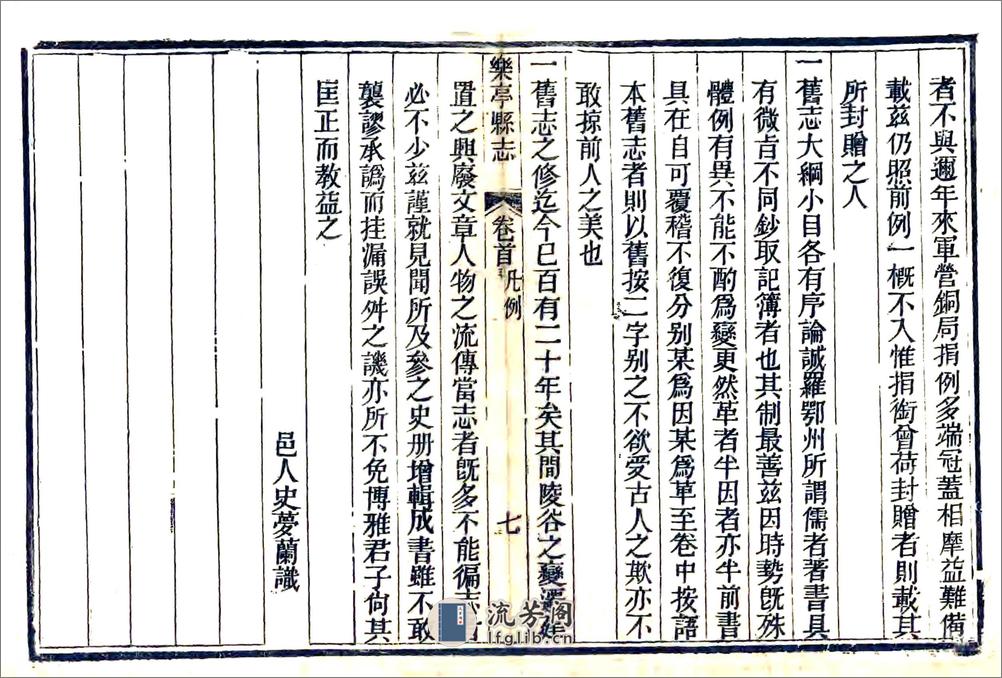 者不與邇年來軍營銅局捐例多端冠蓋相摩益難備
載兹仍照前例一概不入惟捐銜曾荷封贈者則載其
所封贈之人
一舊志大綱小目各有序論誠羅鄂州所謂儒者著書具
有微㫖不同鈔取記簿者也其制最善兹因時勢旣殊
體例有異不能不酌爲變更然革者半因者亦半前書
具在自可覆稽不復分别某爲因某爲革至卷中按語
本舊志者則以舊按二字别之不欲受古人之欺亦不
敢掠前人之美也
一舊志之修迄今已百有二十年矣其間陵谷之變
樂亭縣志
卷首 凡例
七
置之興廢文章人物之流傳當志者旣多不能徧志
必不少兹謹就見聞所及參之史册增輯成書雖不敢
襲謬承譌而挂漏誤舛之譏亦所不免博雅君子尙其
匡正而教益之
邑人史夢蘭識
流芳閣
lfglib.cn